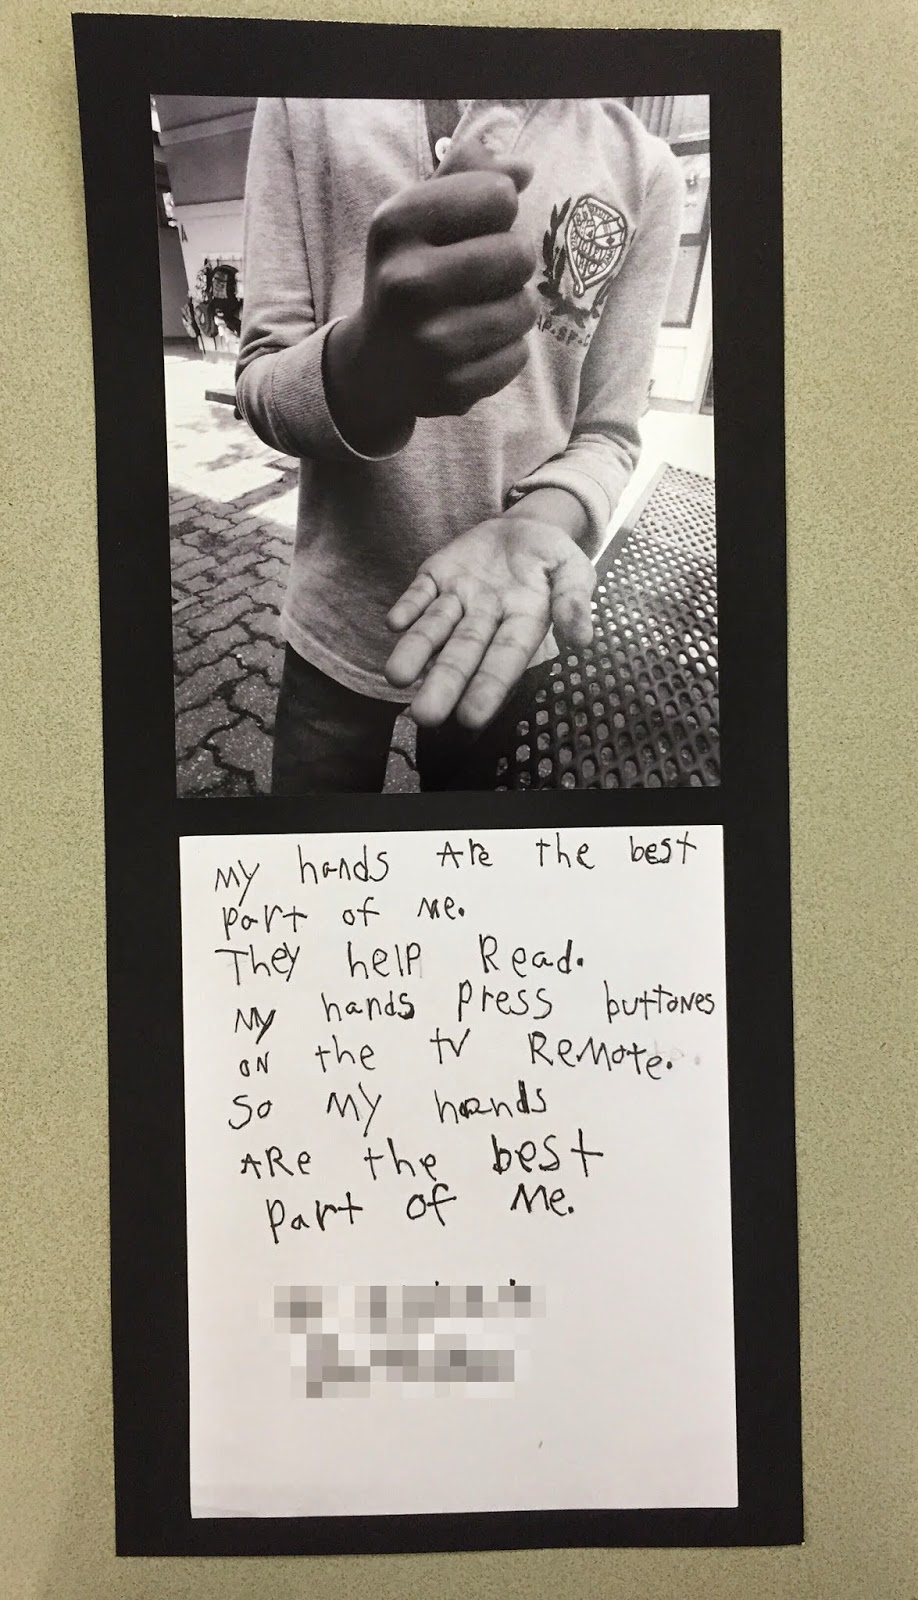 My hands Are the best
part of me.
They help Read.
My hands press buttones
on the tv Remote.
So My hands
ARe the best
part of Me.